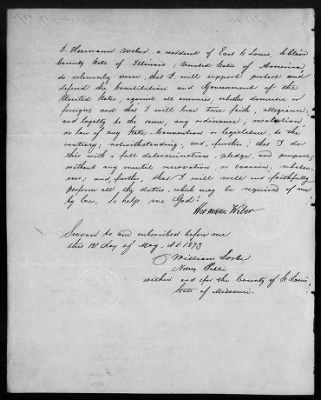 I, Hermann Weber a resident of East St Louis, St Clair
County State of Illinois, United States of America,
do solemnly swear, that I will support protect and
defend the Constitution and Government of the
United States, against all enemies, whether domestic or
foreign and that I will bear true faith, allegiance
and loyalty to the same, any ordinance, resolution
or law of any State Convention or legislature, to the
contrary, notwithstanding; and, further, that I do
this with a full determination, pledge, and purpose,
without any mental reservation or evasion, whatso-
ever; and, further, that I will well and faithfully
perform all the duties, which may be required of me
by law. So help me God!
Hermann Weber
Sworn to and subscribed before me
this 12 day of May, AD 1873
William
Notary Public
within and for the County of St Louis,
State of Missouri.